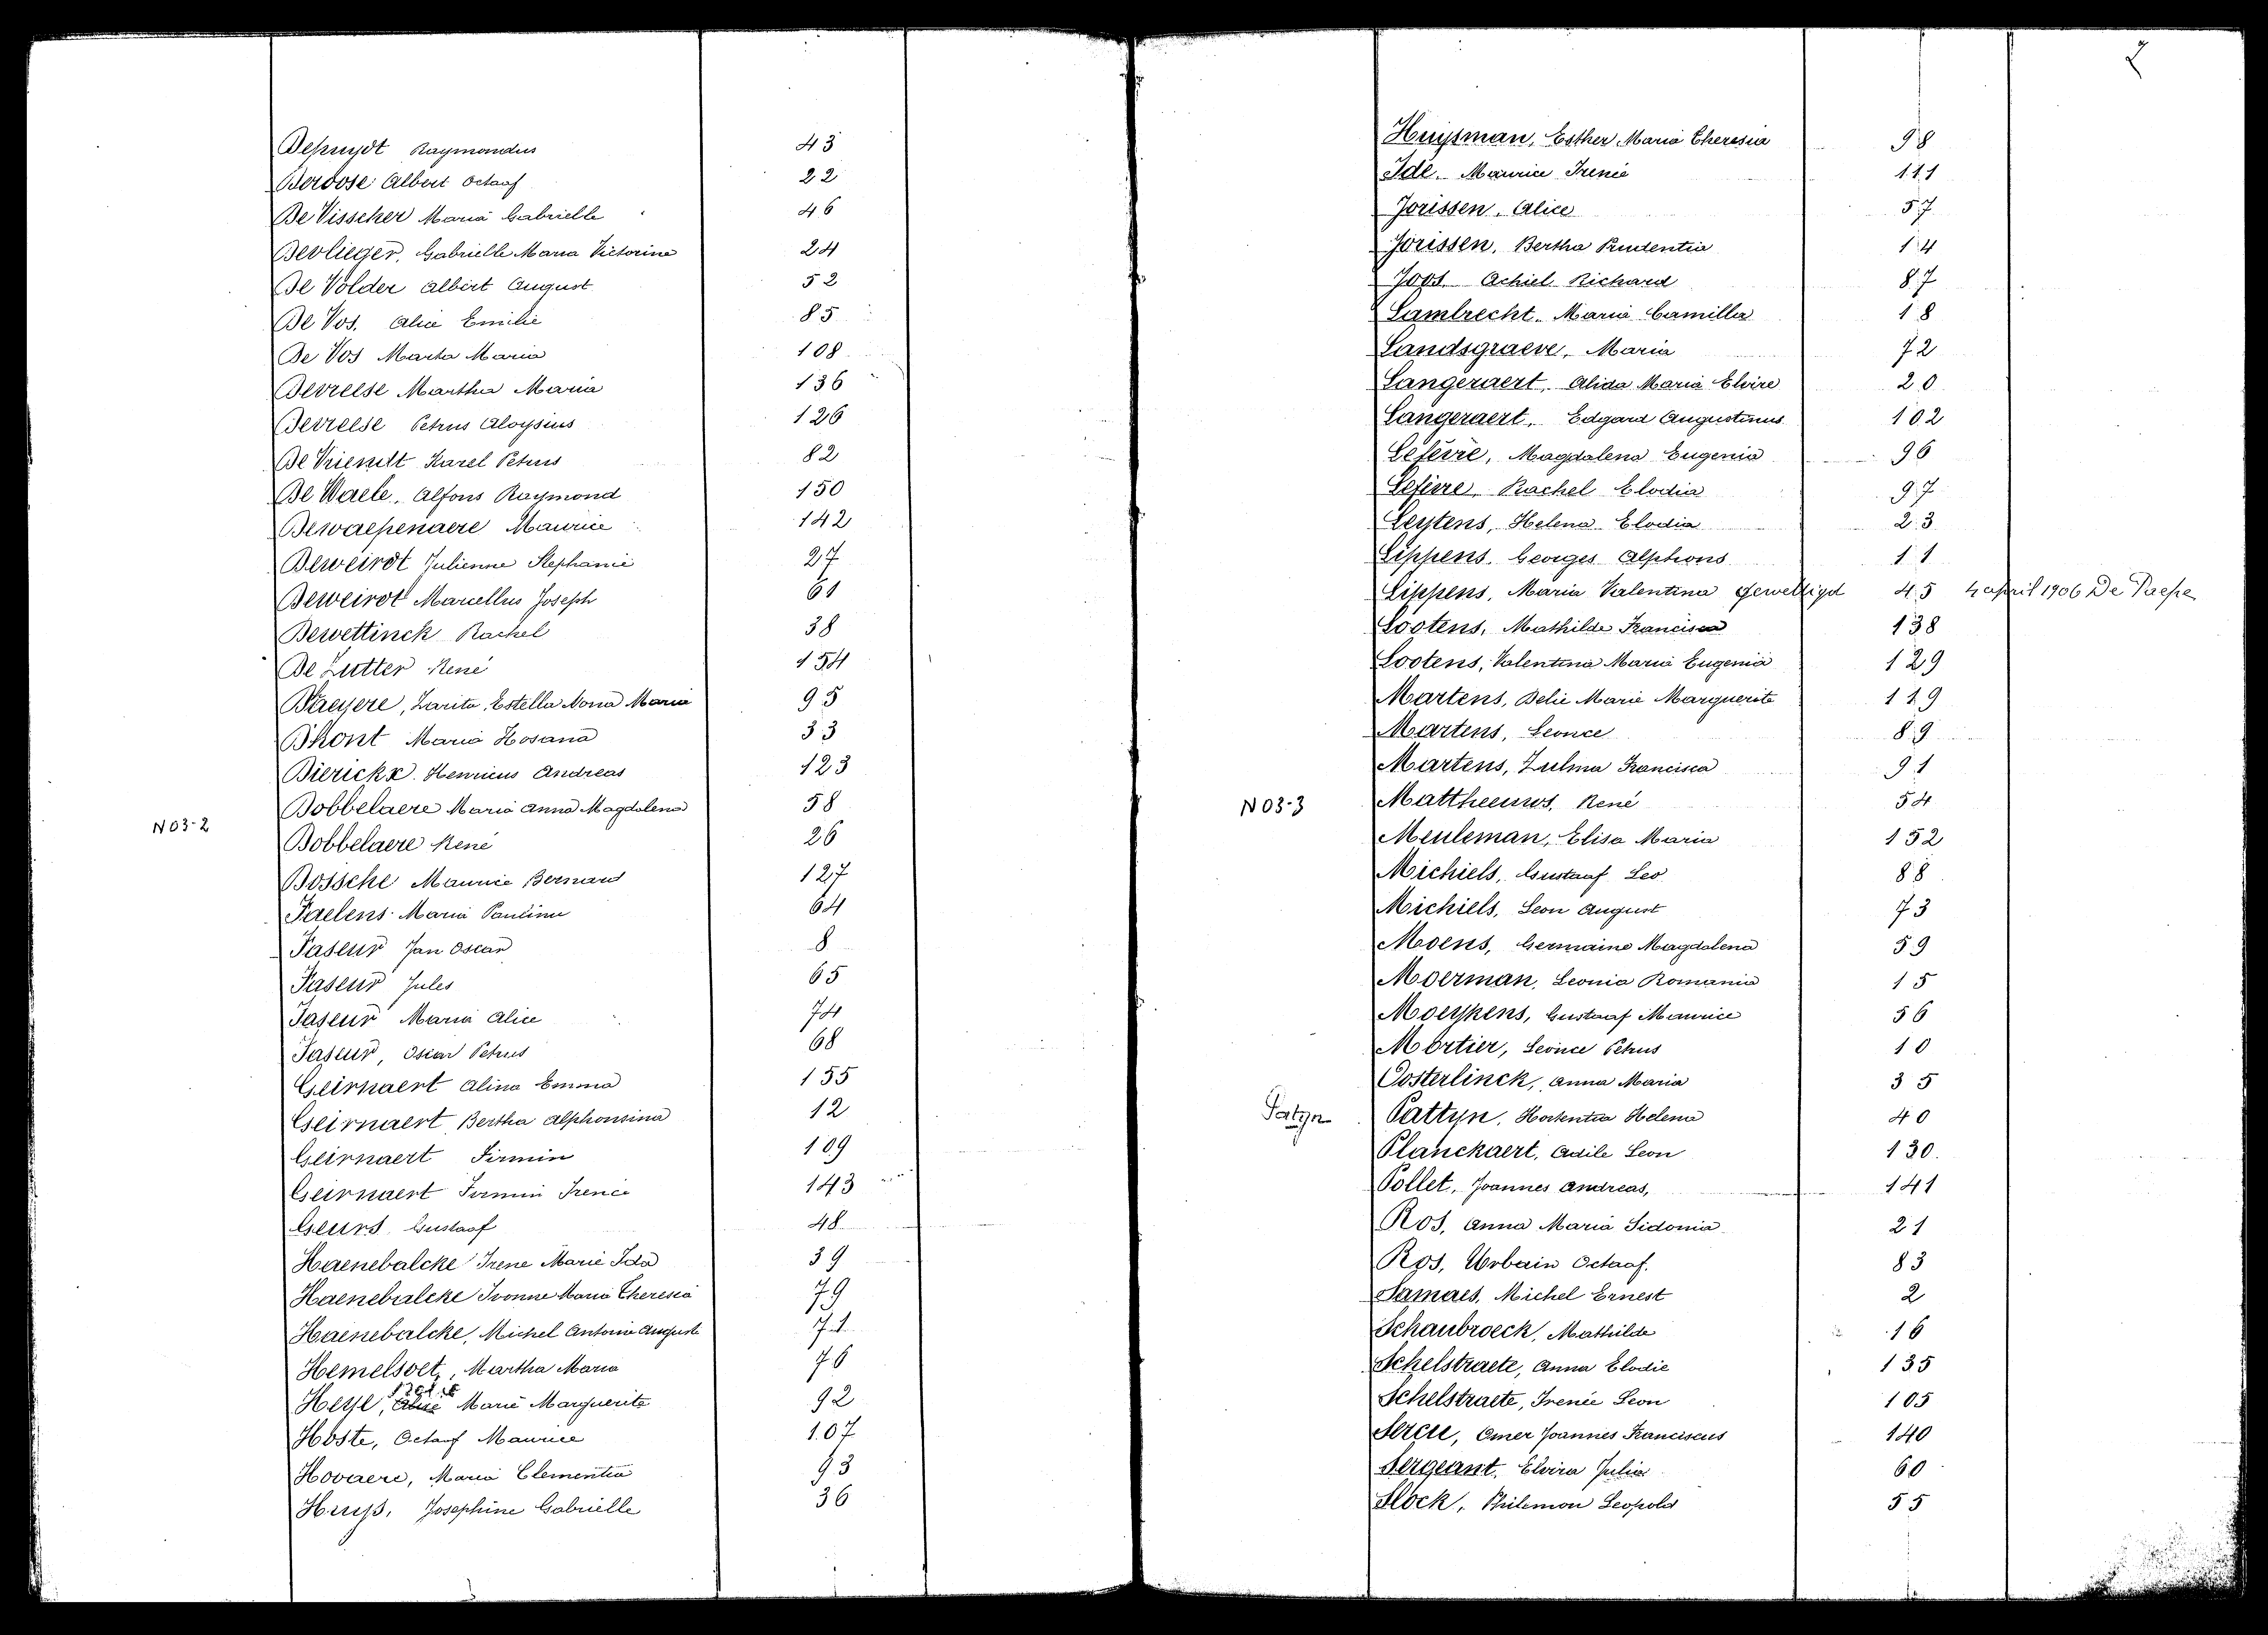 Depuydt Raymondus 43
Deroose Albert Octaaf 22
De Visscher Maria Gabrielle 46
Devlieger, Gabrielle Maria Victorine 24
De Volder Albert August 52
De Vos, Alice Emilie 85
De Vos Marta Maria 108
Devreese Martha Maria 136
Devreese Petrus Aloysius 126
De Vriendt Karel Petrus 82
De Waele, Alfons Raymond 150
Dewaepenaere Maurice 142
Deweirdt Julienne Stephanie 27
Deweirdt Marcellus Joseph 61
Dewettinck Rachel 38
De Zutter René 154
D'haeyere, Zarita, Estella Nona Maria 95
Dhont Maria Hosana 33
Dierickx Henricus Andreas 123
Dobbelaere Maria Anna Magdalena 58
N03-2
Dobbelaere René 26
Dossche Maurice Bernard 127
Faelens Maria Paulina 64
Faseur Jan Oscar 8
Faseur Jules 65
Faseur Maria Alice 74
Faseur, Oscar Petrus 68
Geirnaert Alina Emma 155
Geirnaert Bertha Alphonsina 12
Geirnaert Firmin 109
Geirnaert Firmin Irenée 143
Geurs Gustaaf 48
Haenebalcke Irene Marie Ida 39
Haenebalcke Ivonne Maria Theresia 79
Haenebalcke, Michel Antoine Auguste 71
Hemelsoet, Martha Maria 76
Heyse, Alice Marie Marguerite 92
Hoste, Octaaf Maurice 107
Hovaere, Maria Clementia 93
Huys, Josephine Gabrielle 36
2
Huysman, Esther Maria Theresia 98
Ide, Maurice Irenée 111
Jorissen, Alice 57
Jorissen, Bertha Prudentia 14
Joos, Achiel Richard 87
Lambrecht, Maria Camilla 18
Landsgraeve, Maria 72
Langeraert, Alida Maria Elvire 20
Langeraert, Edgard Augustinus 102
Lefèvre, Magdalena Eugenia 96
Lefèvre, Rachel Elodia 97
Leytens, Helena Elodia 23
Lippens, Georges Alphons 11
Lippens, Maria Valentina gewettigd 45 4 april 1906 De Paepe
Lootens, Mathilde Francisca 138
Lootens, Valentina Maria Eugenia 129
Martens, Delie Marie Marguerite 119
Martens, Leonce 89
Martens, Zulma Francisca 91
N03-3
Mattheeuws, René 54
Meuleman, Elisa Maria 152
Michiels, Gustaaf Leo 88
Michiels, Leon August 73
Moens, Germaine Magdalena 59
Moerman, Leonia Romania 15
Moerkens, Gustaaf Maurice 56
Mortier, Leonce Petrus 10
Oosterlinck, Anna Maria 35
Patyn Pattyn, Hortentia Helena 40
Planckaert, Odile Leon 130
Pollet, Joannes Andreas, 141
Ros, Anna Maria Sidonia 21
Ros, Urbain Octaaf. 83
Samaes, Michel Ernest 2
Schaubroeck, Mathilde 16
Schelstraete, Anna Elodie 135
Schelstraete, Irenée Leon 105
Sercu, Omer Joannes Franciscus 140
Sergeant, Elvira Julia 60
Slock, Philemon Leopold 55